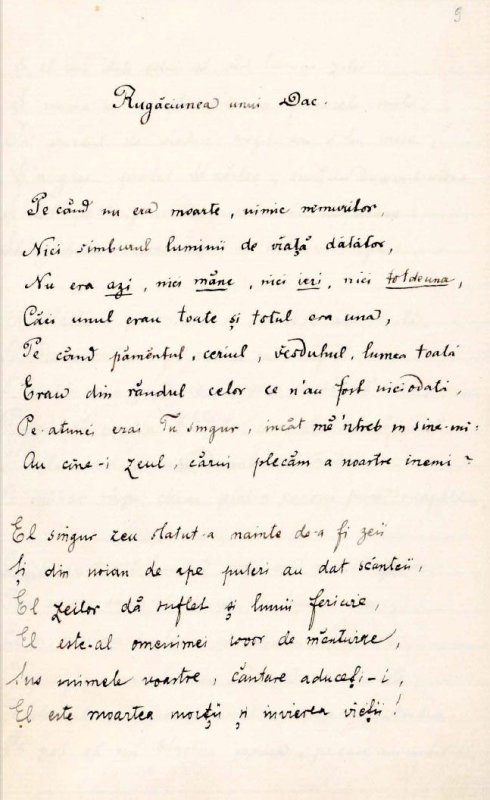 9
Rugăciunea unui Dac.
Pe când nu era moarte, nimic nemuritor,
Nici sîmburul luminii de viață dătător,
Nu era azi, nici mâne, nici ieri, nici totdeuna,
Căci unul erau toate și totul era una,
Pe când pământul, ceriul, văzduhul, lumea toată
Erau din rândul celor ce n'au fost niciodată,
Pe-atunci erai Tu singur, încât mĕ'ntreb în sine-mi:
Au cine-i zeul, cărui plecăm a noastre inemi?
El singur zeu stătut-a nainte de-a fi zeii
Și din noian de ape puteri au dat scânteii,
El zeilor dă suflet și lumii fericire,
El este-al omenimei isvor de mântuire,
Sus inimele voastre, cântare aduceți-i,
El este moartea morții și învierea vieții!